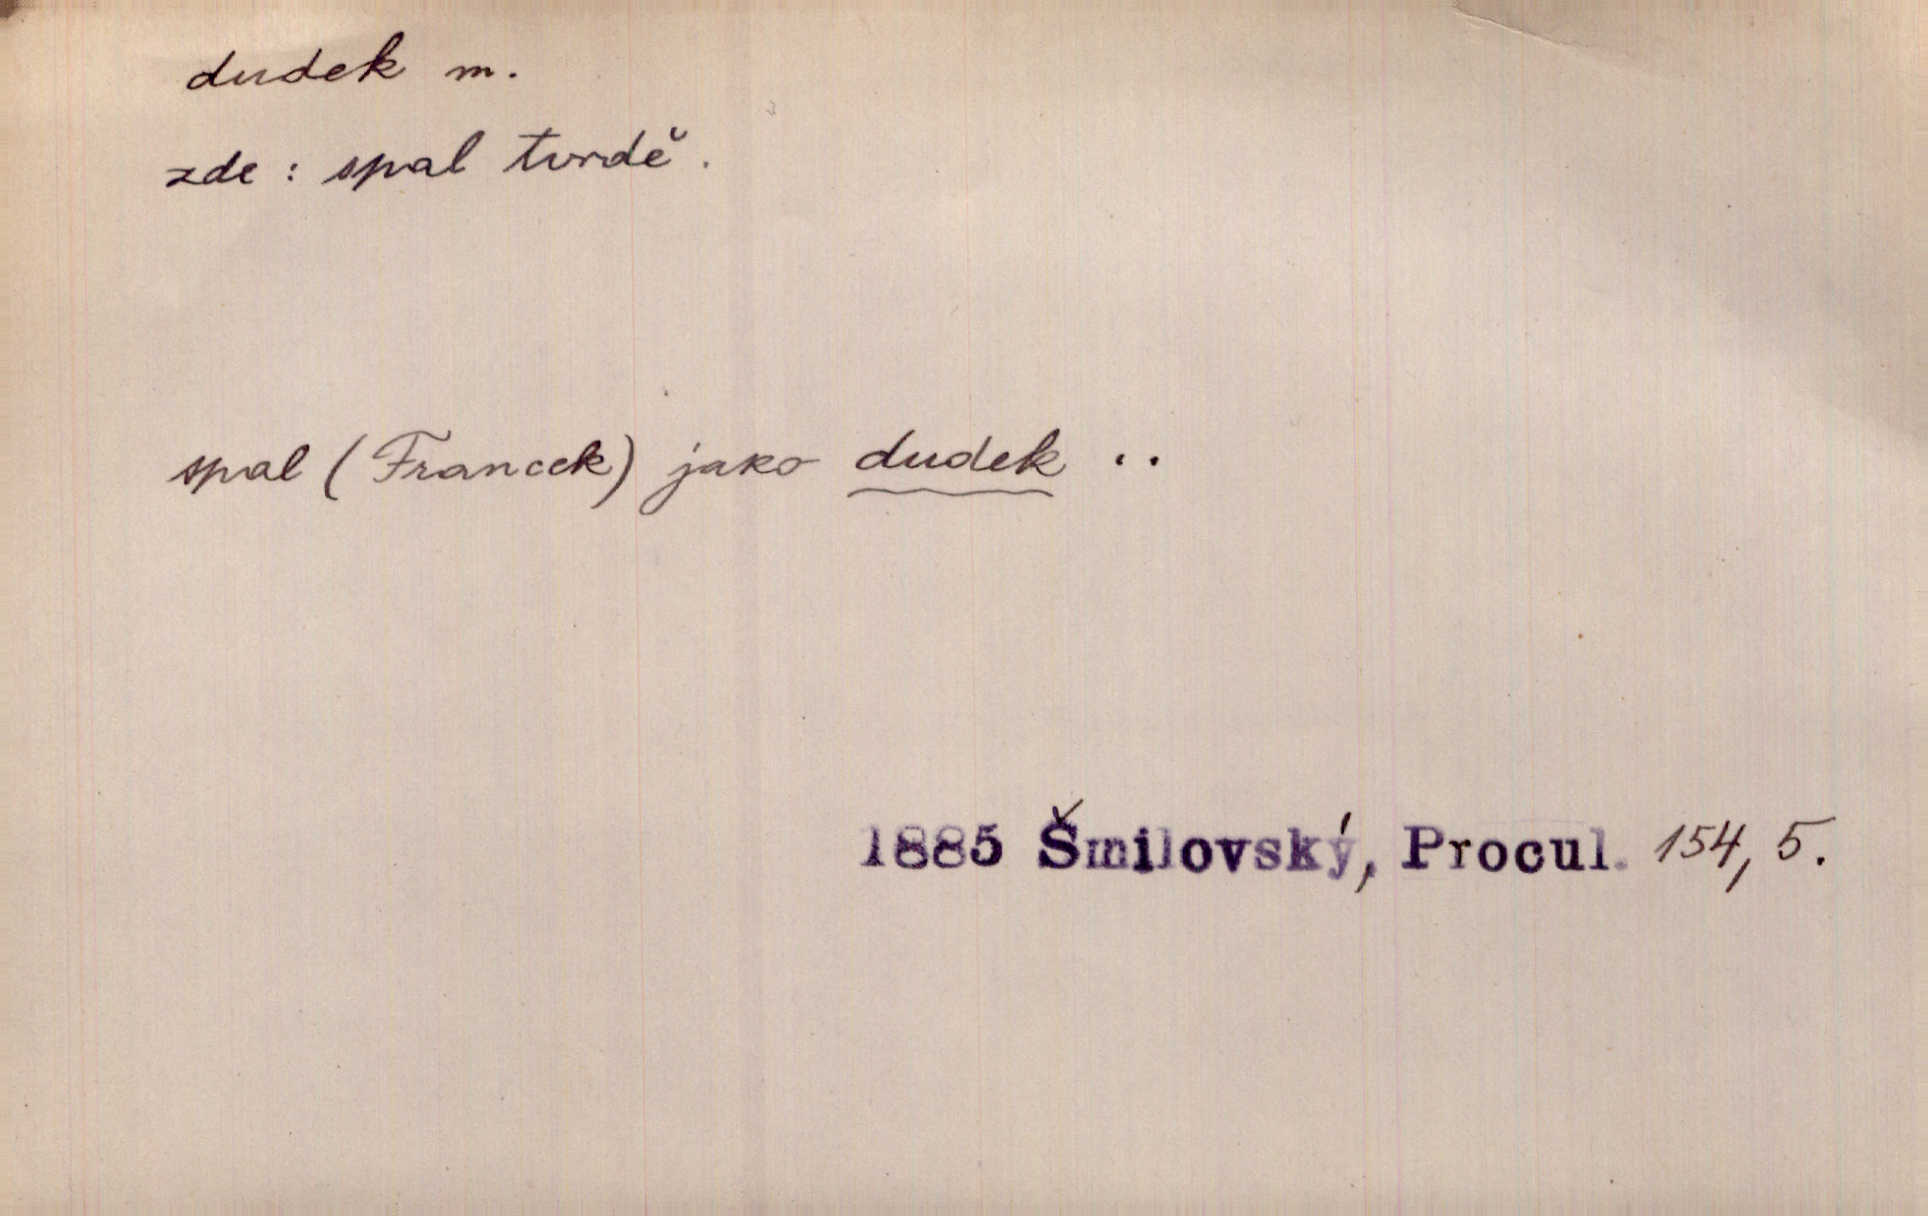 dudek m.
zde: spal tvrdě.
spal (Francek) jako dudek ..
1885 Šmilovský, Procul. 154, 5.